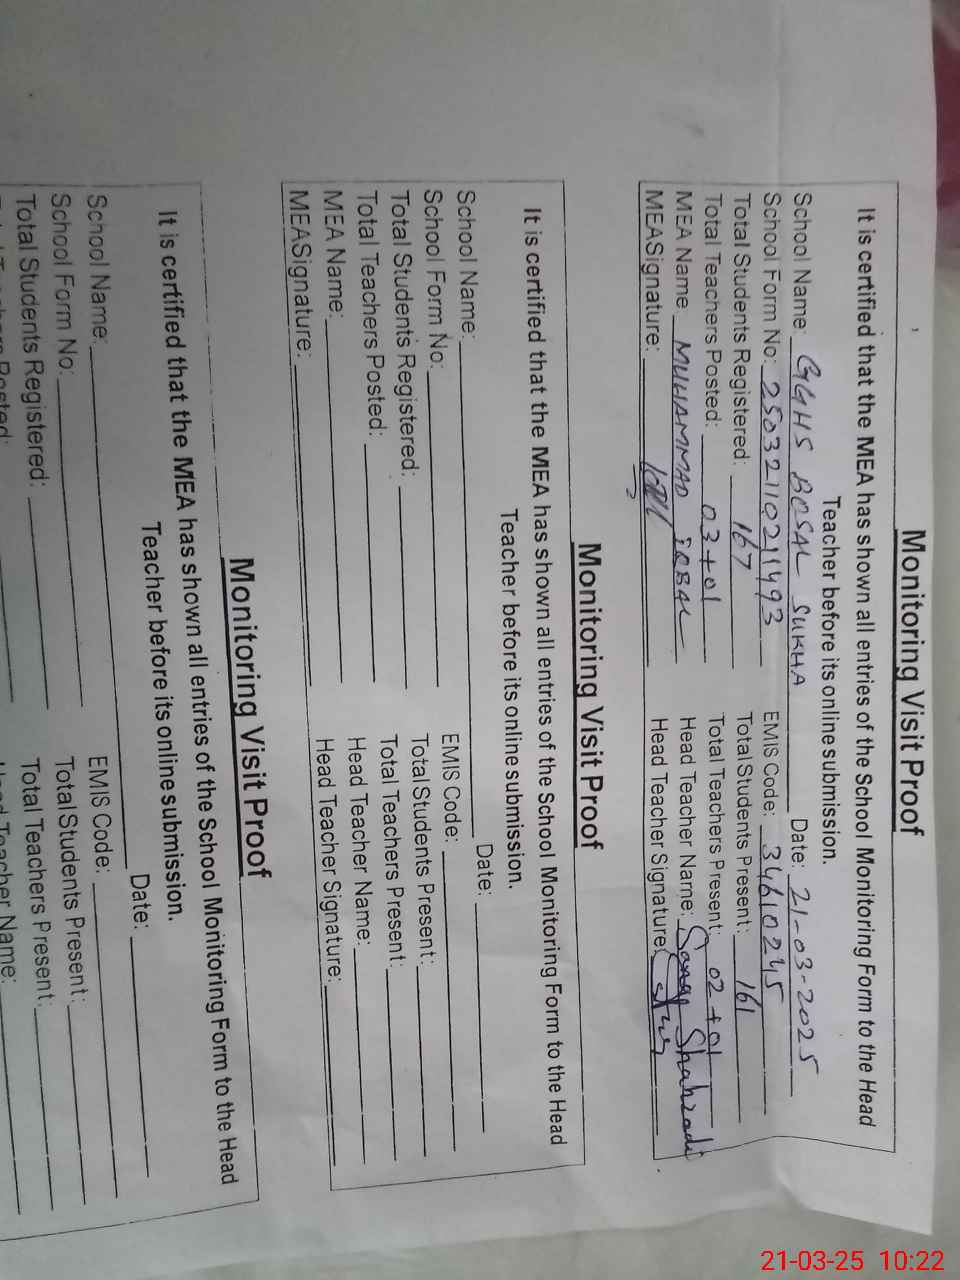 Monitoring Visit Proof
It is certified that the MEA has shown all entries of the School Monitoring Form to the Head
Teacher before its online submission.
School Name: GGHS BOSAL SUKHA Date: 21-03-2025
School Form No: 25032110211493 EMIS Code: 34610245
Total Students Registered: 167 Total Students Present: 161
Total Teachers Posted: 03+01 Total Teachers Present: 02+01
MEA Name MUHAMMAD IQBAL Head Teacher Name: Shahzadi
MEASignature: Head Teacher Signature:
Monitoring Visit Proof
It is certified that the MEA has shown all entries of the School Monitoring Form to the Head
Teacher before its online submission.
School Name: Date:
School Form No: EMIS Code:
Total Students Registered: Total Students Present:
Total Teachers Posted: Total Teachers Present:
MEA Name: Head Teacher Name:
MEASignature: Head Teacher Signature:
Monitoring Visit Proof
It is certified that the MEA has shown all entries of the School Monitoring Form to the Head
Teacher before its online submission.
School Name: Date:
School Form No: EMIS Code:
Total Students Registered: Total Students Present:
Total Teachers Present:
Teacher Name:
21-03-25 10:22